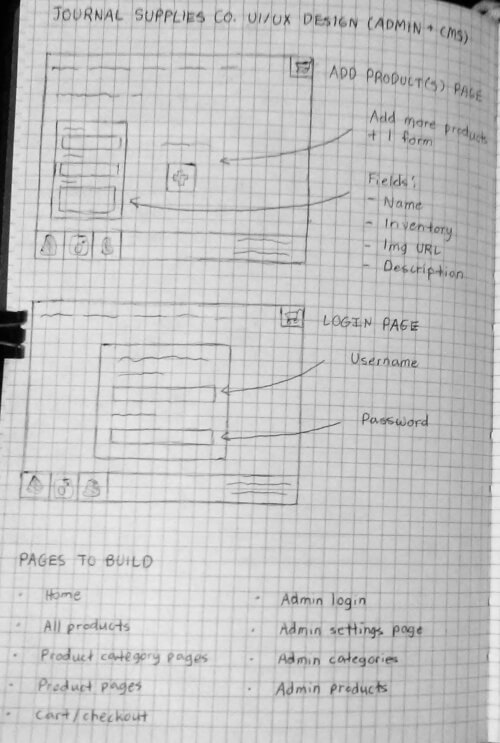 JOURNAL SUPPLIES CO. UI/UX DESIGN (ADMIN + CMS)
ADD PRODUCT(S) PAGE
Add more products
+ 1 form
Fields:
- Name
- Inventory
- Img URL
- Description
LOGIN PAGE
Username
Password
PAGES TO BUILD
· Home
· All products
· Product category pages
· Product pages
· Cart/checkout
· Admin login
· Admin settings page
· Admin categories
· Admin products